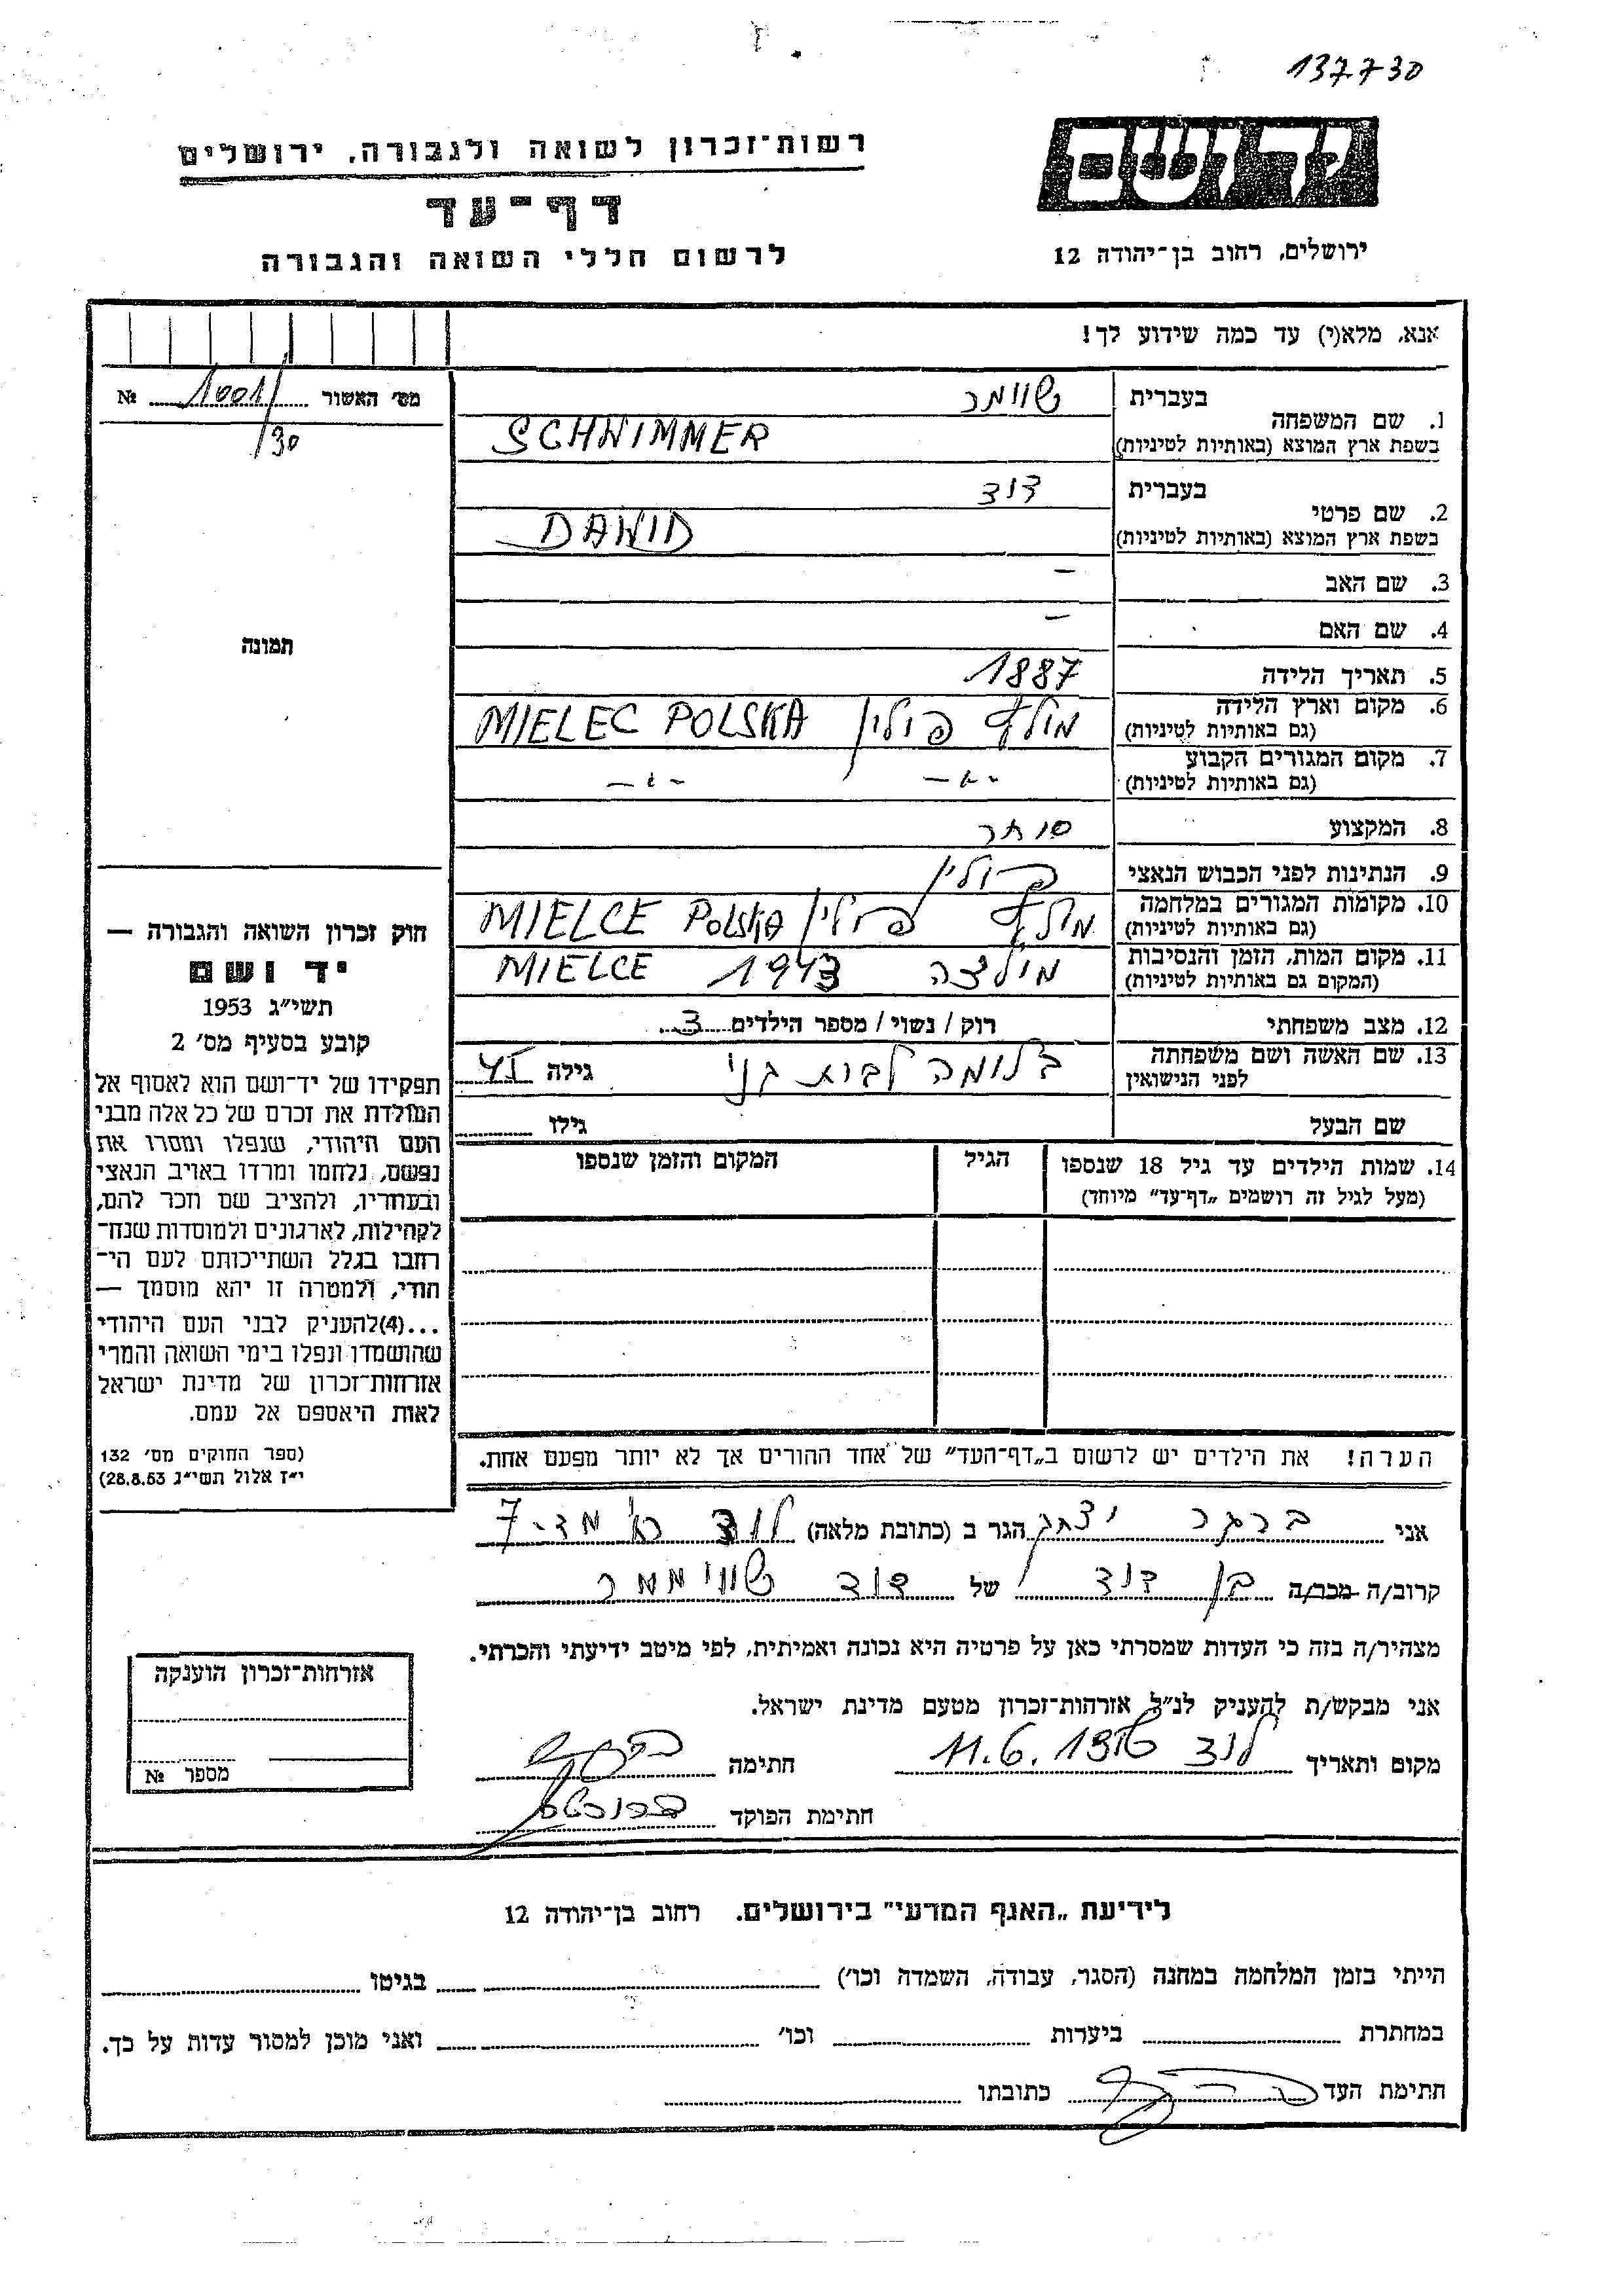 137730
רשות־זכרון לשואה ולגבורה. ירושלים
יד ושם
דף־עד
לרשום חללי השואה והגבורה
ירושלים, רחוב בן־יהודה 12
אנא, מלא(י) עד כמה שידוע לך!
מס׳ האשור № 1001/
/30
תמונה
1. שם המשפחה בעברית שוומר
בשפת ארץ המוצא (באותיות לטיניות) SCHWIMMER
2. שם פרטי בעברית דוד
בשפת ארץ המוצא (באותיות לטיניות) DAWID
3. שם האב –
4. שם האם –
5. תאריך הלידה 1887
6. מקום וארץ הלידה (גם באותיות לטיניות) פולין MIELEC POLSKA
7. מקום המגורים הקבוע (גם באותיות לטיניות) -"- -"-
8. המקצוע סוחר
9. הנתינות לפני הכבוש הנאצי פולין
10. מקומות המגורים במלחמה (גם באותיות לטיניות) פולין MIELCE POLSKA
11. מקום המות, הזמן והנסיבות (המקום גם באותיות לטיניות) מילצה 1943 MIELCE
12. מצב משפחתי רוק / נשוי / מספר הילדים 3
13. שם האשה ושם משפחתה לפני הנישואין בלומה לבית גילה 45
שם הבעל גילו
14. שמות הילדים עד גיל 18 שנספו הגיל המקום והזמן שנספו
(מעל לגיל זה רושמים „דף־עד״ מיוחד)
הערה! את הילדים יש לרשום ב„דף־העד״ של אחד ההורים אך לא יותר מפעם אחת.
חוק זכרון השואה והגבורה —
יד ושם
תשי״ג 1953
קובע בסעיף מס׳ 2
תפקידו של יד־ושם הוא לאסוף אל
המולדת את זכרם של כל אלה מבני
העם היהודי, שנפלו ומסרו את
נפשם, נלחמו ומרדו באויב הנאצי
ובעוזריו, ולהציב שם וזכר להם,
לקהילות, לארגונים ולמוסדות שנח־
רבו בגלל השתייכותם לעם הי־
הודי, ולמטרה זו יהא מוסמך —
...(4)להעניק לבני העם היהודי
שהושמדו ונפלו בימי השואה והמרי
אזרחות־זכרון של מדינת ישראל
לאות היאספם אל עמם.
(ספר החוקים מס׳ 132
י״ז אלול תשי״ג 28.8.53)
אני ברגר יצחק הגר ב (כתובת מלאה) לוד
קרוב/ה מכר/ה בן דוד של דוד שווימר
מצהיר/ה בזה כי העדות שמסרתי כאן על פרטיה היא נכונה ואמיתית, לפי מיטב ידיעתי והכרתי.
אני מבקש/ת להעניק לנ״ל אזרחות־זכרון מטעם מדינת ישראל.
מקום ותאריך לוד 11.6. חתימה
חתימת הפוקד
אזרחות־זכרון הוענקה
מספר №
לידיעת „האגף המדעי״ בירושלים. רחוב בן־יהודה 12
הייתי בזמן המלחמה במחנה (הסגר, עבודה, השמדה וכו׳) בגיטו
במחתרת ביערות וכו׳ ואני מוכן למסור עדות על כך.
חתימת העד כתובתו